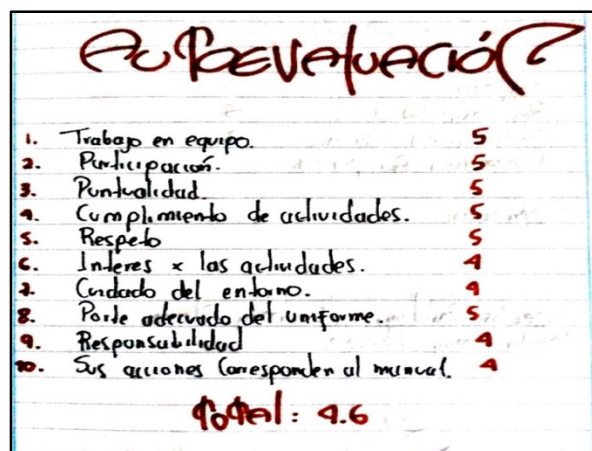 AUTOEVALUACIÓN
1. Trabajo en equipo. 5
2. Participación. 5
3. Puntualidad 5
4. Cumplimiento de actividades. 5
5. Respeto 5
6. Interes x las actividades. 4
7. Cuidado del entorno. 4
8. Porte adecuado del uniforme. 5
9. Responsabilidad 4
10. Sus acciones corresponden al manual. 4
Total: 4.6